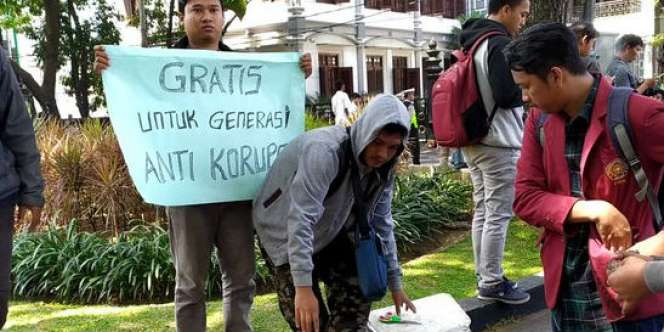 GRATIS
UNTUK GENERASI
ANTI KORUPSI